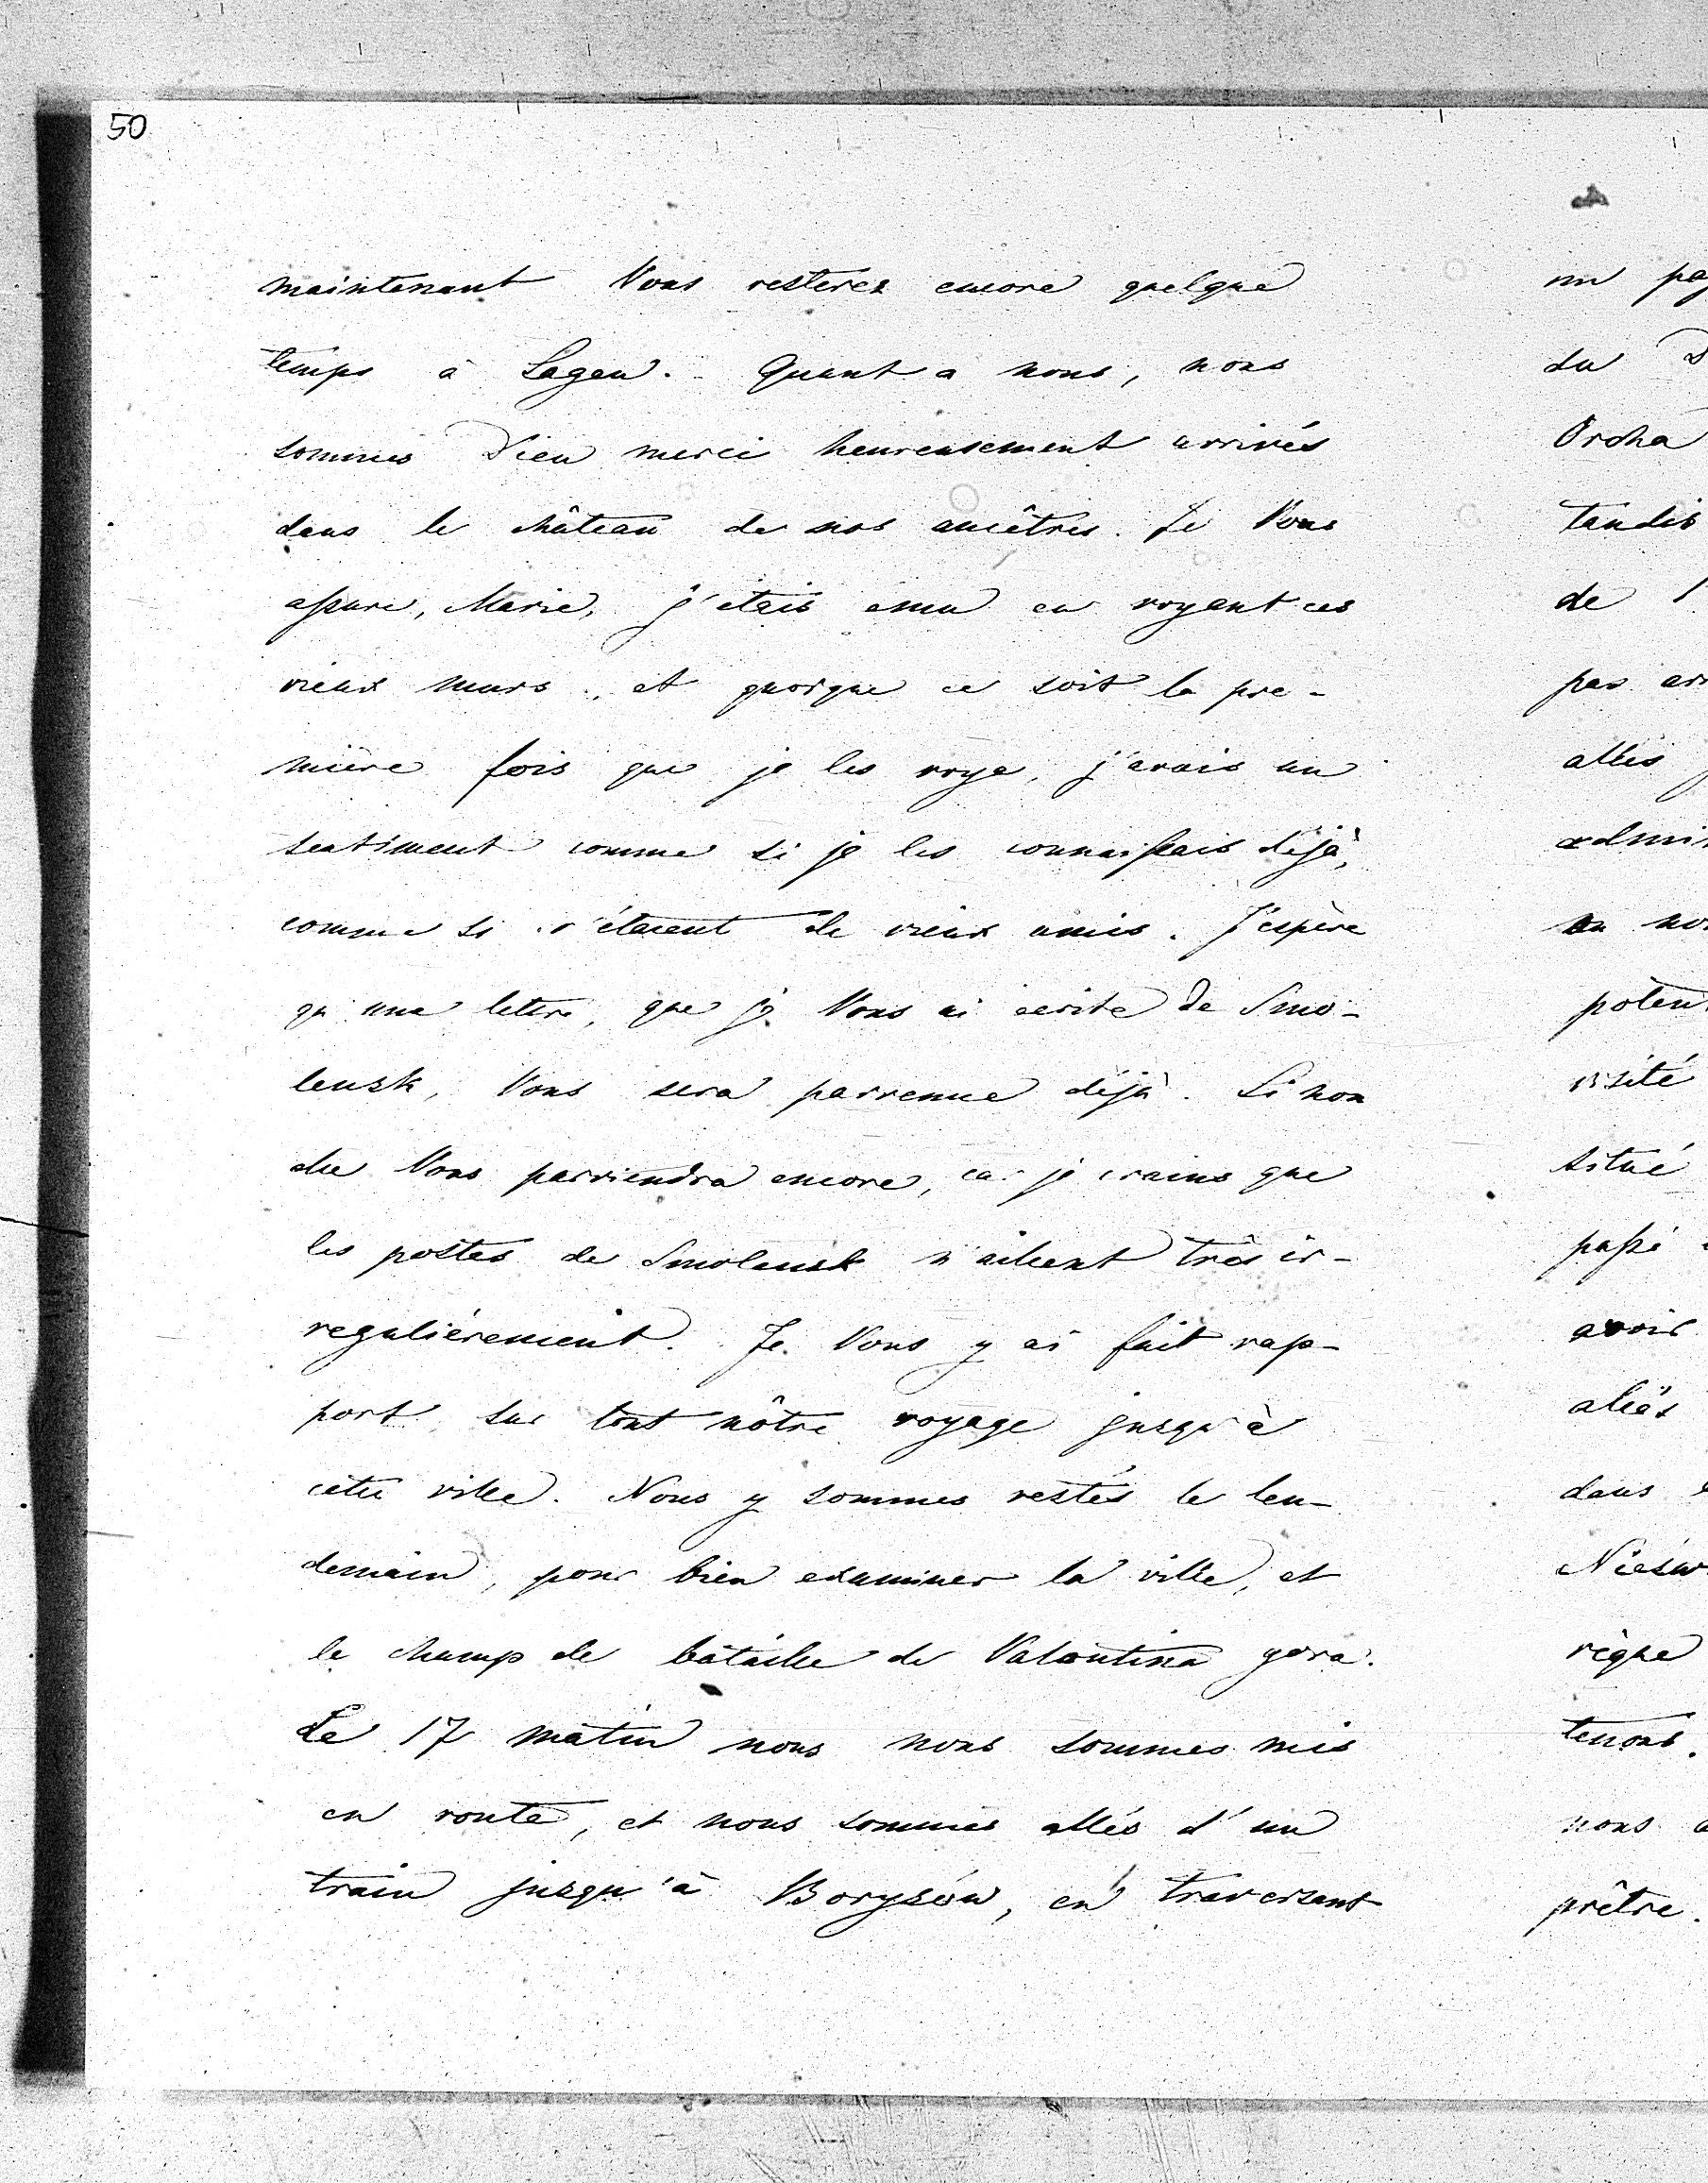 50
maintenant Vous resterez encore quelque
temps à Sagan. Quant a nous, nous
sommes Dieu merci heureusement arrivés
dans le château de nos ancêtres. Je Vous
assure, Marie, j'etais emu en voyant ces
vieux murs, et quoique ce soit la pre-
mière fois que je les voye, j'avais un
sentiment comme si je les connaissais déjà,
comme si c'étaient de vieux amis. J'espère
qu'une lettre, que je Vous ai ecrite de Smo-
lensk, Vous sera parvenue déjà. Si non
elle Vous parviendra encore, car je crains que
les postes de Smolensk n'aillent très ir-
regulièrement. Je Vous y ai fait rap-
port sur tout nôtre voyage jusqu'à
cette ville. Nous y sommes restés le len-
demain, pour bien examiner la ville, et
le champ de bataille de Valoutina gora.
Le 17 matin nous nous sommes mis
en route, et nous sommes allés d'un
train jusqu'à Borysów, en traversant
un
du
Orcha
tandis
de
pas
allés
en
visité
situé
passé
avoir
dans
règne
tenons.
nous
prêtre.